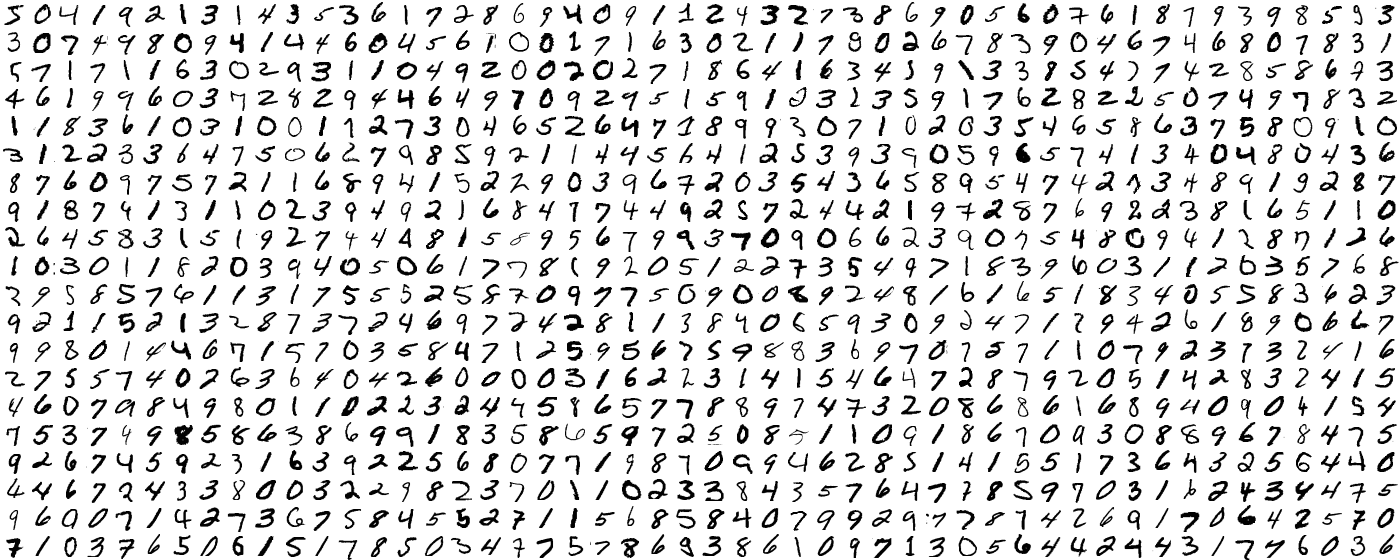 5 0 4 1 9 2 1 3 1 4 3 5 3 6 1 7 2 8 6 9 4 0 9 1 1 2 4 3 2 7 3 8 6 9 0 5 6 0 7 6 1 8 7 9 3 9 8 5 9 3
3 0 7 4 9 8 0 9 4 1 4 4 6 0 4 5 6 1 0 0 1 7 1 6 3 0 2 1 1 7 9 0 2 6 7 8 3 9 0 4 6 7 4 6 8 0 7 8 3 1
5 7 1 7 1 1 6 3 0 2 9 3 1 1 0 4 9 2 0 0 2 0 2 7 1 8 6 4 1 6 3 4 5 9 1 3 3 8 5 4 7 7 4 2 8 5 8 6 7 3
4 6 1 9 9 6 0 3 7 2 8 2 9 4 4 6 4 9 7 0 9 2 9 5 1 5 9 1 2 3 2 3 5 9 1 7 6 2 8 2 2 5 0 7 4 9 7 8 3 2
1 1 8 3 6 1 0 3 1 0 0 1 7 2 7 3 0 4 6 5 2 6 4 7 1 8 9 9 3 0 7 1 0 2 0 3 5 4 6 5 8 6 3 7 5 8 0 9 1 0
3 1 2 2 3 3 6 4 7 5 0 6 2 7 9 8 5 9 2 1 1 4 4 5 6 4 1 2 5 3 9 3 9 0 5 9 6 5 7 4 1 3 4 0 4 8 0 4 3 6
8 7 6 0 9 7 5 7 2 1 1 6 8 9 4 1 5 2 2 9 0 3 9 6 7 2 0 3 5 4 3 6 5 8 9 5 4 7 4 2 7 3 4 8 9 1 9 2 8 7
9 1 8 7 4 1 3 1 1 0 2 3 9 4 9 2 1 6 8 4 7 7 4 4 9 2 5 7 2 4 4 2 1 9 7 2 8 7 6 9 2 2 3 8 1 6 5 1 1 0
2 6 4 5 8 3 1 5 1 9 2 7 4 4 4 8 1 5 8 9 5 6 7 9 9 3 7 0 9 0 6 6 2 3 9 0 7 5 4 8 0 9 4 1 2 8 7 1 2 6
1 0 3 0 1 1 8 2 0 3 9 4 0 5 0 6 1 7 7 8 1 9 2 0 5 1 2 2 7 3 5 4 9 7 1 8 3 9 6 0 3 1 1 2 6 3 5 7 6 8
3 9 5 8 5 7 6 1 1 3 1 7 5 5 5 2 5 8 7 0 9 7 7 5 0 9 0 0 8 9 2 4 8 1 6 1 6 5 1 8 3 4 0 5 5 8 3 6 2 3
9 2 1 1 5 2 1 3 2 8 7 3 7 2 4 6 9 7 2 4 2 8 1 1 3 8 4 0 6 5 9 3 0 9 2 4 7 1 2 9 4 2 6 1 8 9 0 6 6 7
9 9 8 0 1 4 4 6 7 1 5 7 0 3 5 8 4 7 1 2 5 9 5 6 7 5 9 8 8 3 6 9 7 0 7 5 7 1 1 0 7 9 2 3 7 3 2 4 1 6
2 7 5 5 7 4 0 2 6 3 6 4 0 4 2 6 0 0 0 0 3 1 6 2 2 3 1 4 1 5 4 6 4 7 2 8 7 9 2 0 5 1 4 2 8 3 2 4 1 5
4 6 0 7 9 8 4 9 8 0 1 1 0 2 2 3 2 4 4 5 8 6 5 7 7 8 8 9 7 4 7 3 2 0 8 6 8 6 1 6 8 9 4 0 9 0 4 1 5 4
7 5 3 7 4 9 8 5 8 6 3 8 6 9 9 1 8 3 5 8 6 5 9 7 2 5 0 8 5 1 1 0 9 1 8 6 7 0 9 3 0 8 8 9 6 7 8 4 7 5
9 2 6 7 4 5 9 2 3 1 6 3 9 2 2 5 6 8 0 7 7 1 9 8 7 0 9 9 4 6 2 8 5 1 4 1 5 5 1 7 3 6 4 3 2 5 6 4 4 0
4 4 6 7 2 4 3 3 8 0 0 3 2 2 9 8 2 3 7 0 1 1 0 2 3 3 8 4 3 5 7 6 4 7 7 8 5 9 7 0 3 1 6 2 4 3 4 4 7 5
9 6 9 0 7 1 4 2 7 3 6 7 5 8 4 5 5 2 7 1 1 5 6 8 5 8 4 0 7 9 9 2 9 7 7 8 7 4 2 6 9 1 7 0 6 4 2 5 7 0
7 1 0 3 7 6 5 0 6 1 5 1 7 8 5 0 3 4 7 7 5 7 8 6 9 3 8 6 1 0 9 7 1 3 0 5 6 4 4 2 4 4 3 1 7 7 6 0 3 6